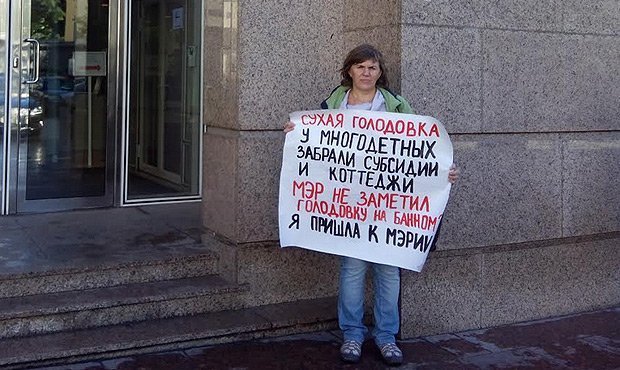 СУХАЯ ГОЛОДОВКА
У МНОГОДЕТНЫХ
ЗАБРАЛИ СУБСИДИИ
И КОТТЕДЖИ
МЭР НЕ ЗАМЕТИЛ
ГОЛОДОВКУ НА БАННОМ?
Я ПРИШЛА К МЭРИИ